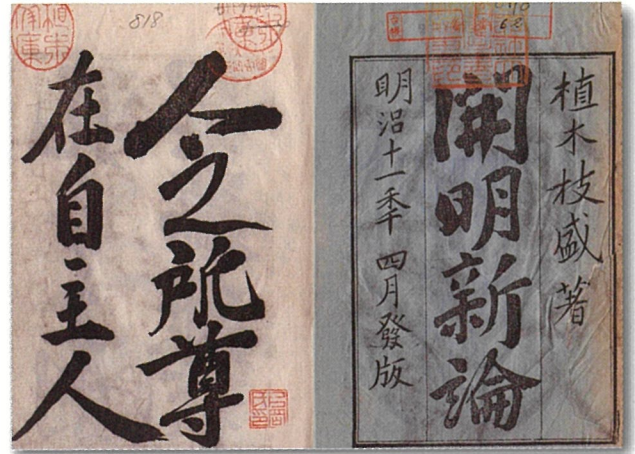 植木枝盛著
開明新論
明治十一秊四月發版
818
人之所尊
在自主人